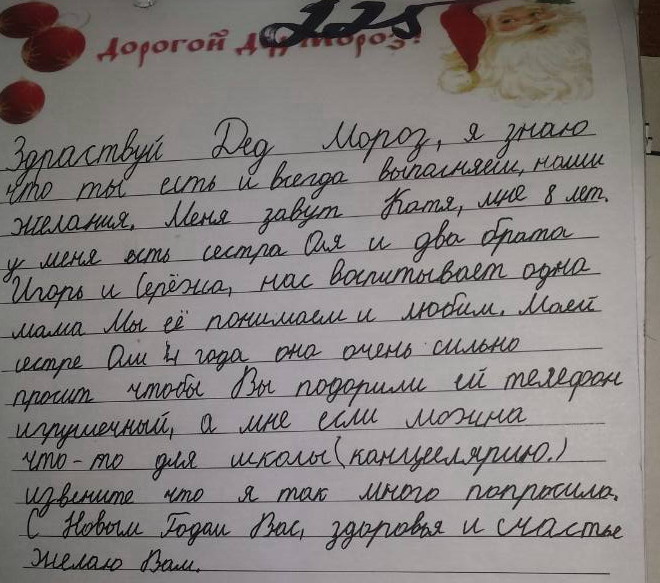 225
Дорогой Дед Мороз!
Здраствуй Дед Мороз, я знаю
что ты есть и всегда выпаняеш, наши
желания. Меня завут Катя, мне 8 лет.
у меня есть сестра Оля и два брата
Игорь и Серёжа, нас воспитывает одна
мама Мы её понимаем и любим. Маей
сестре Оли 4 года она очень сильно
просит чтобы Вы подорили ей телефон
игрушечный, а мне если можна
что-то для школы (канцелярию.)
извените что я так много попросила.
С Новым Годам Вас, здоровья и счастье
желаю Вам.